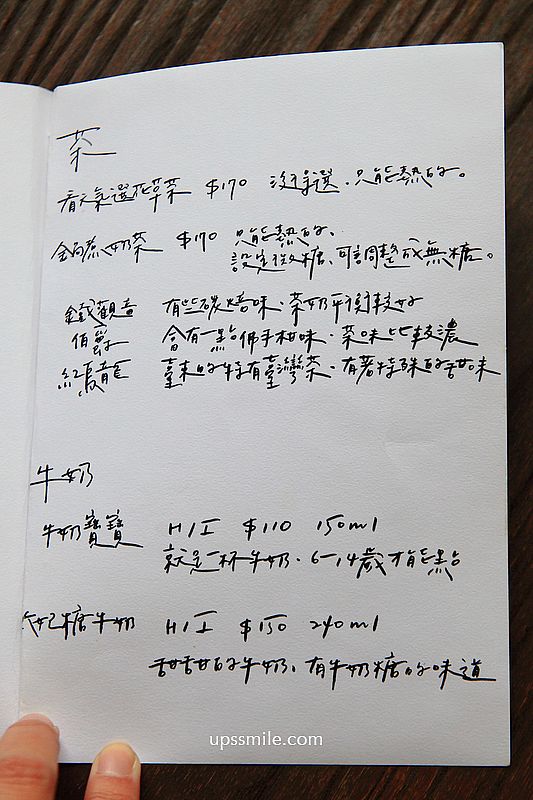 茶
看天氣選花草茶 $170 沒得選、只能熱的。
鍋煮奶茶 $170 只能熱的、
設定微糖、可調整成無糖。
鐵觀音 有些碳焙味、茶奶平衡較好
伯爵 會有一點佛手柑味、茶味比較濃
紅烏龍 臺東的特有臺灣茶、有著特殊的甜味
牛奶
牛奶寶寶 H/I $110 150ml
就是一杯牛奶、6-14歲才能點
太妃糖牛奶 H/I $150 240ml
甜甜的牛奶、有牛奶糖的味道
upssmile.com